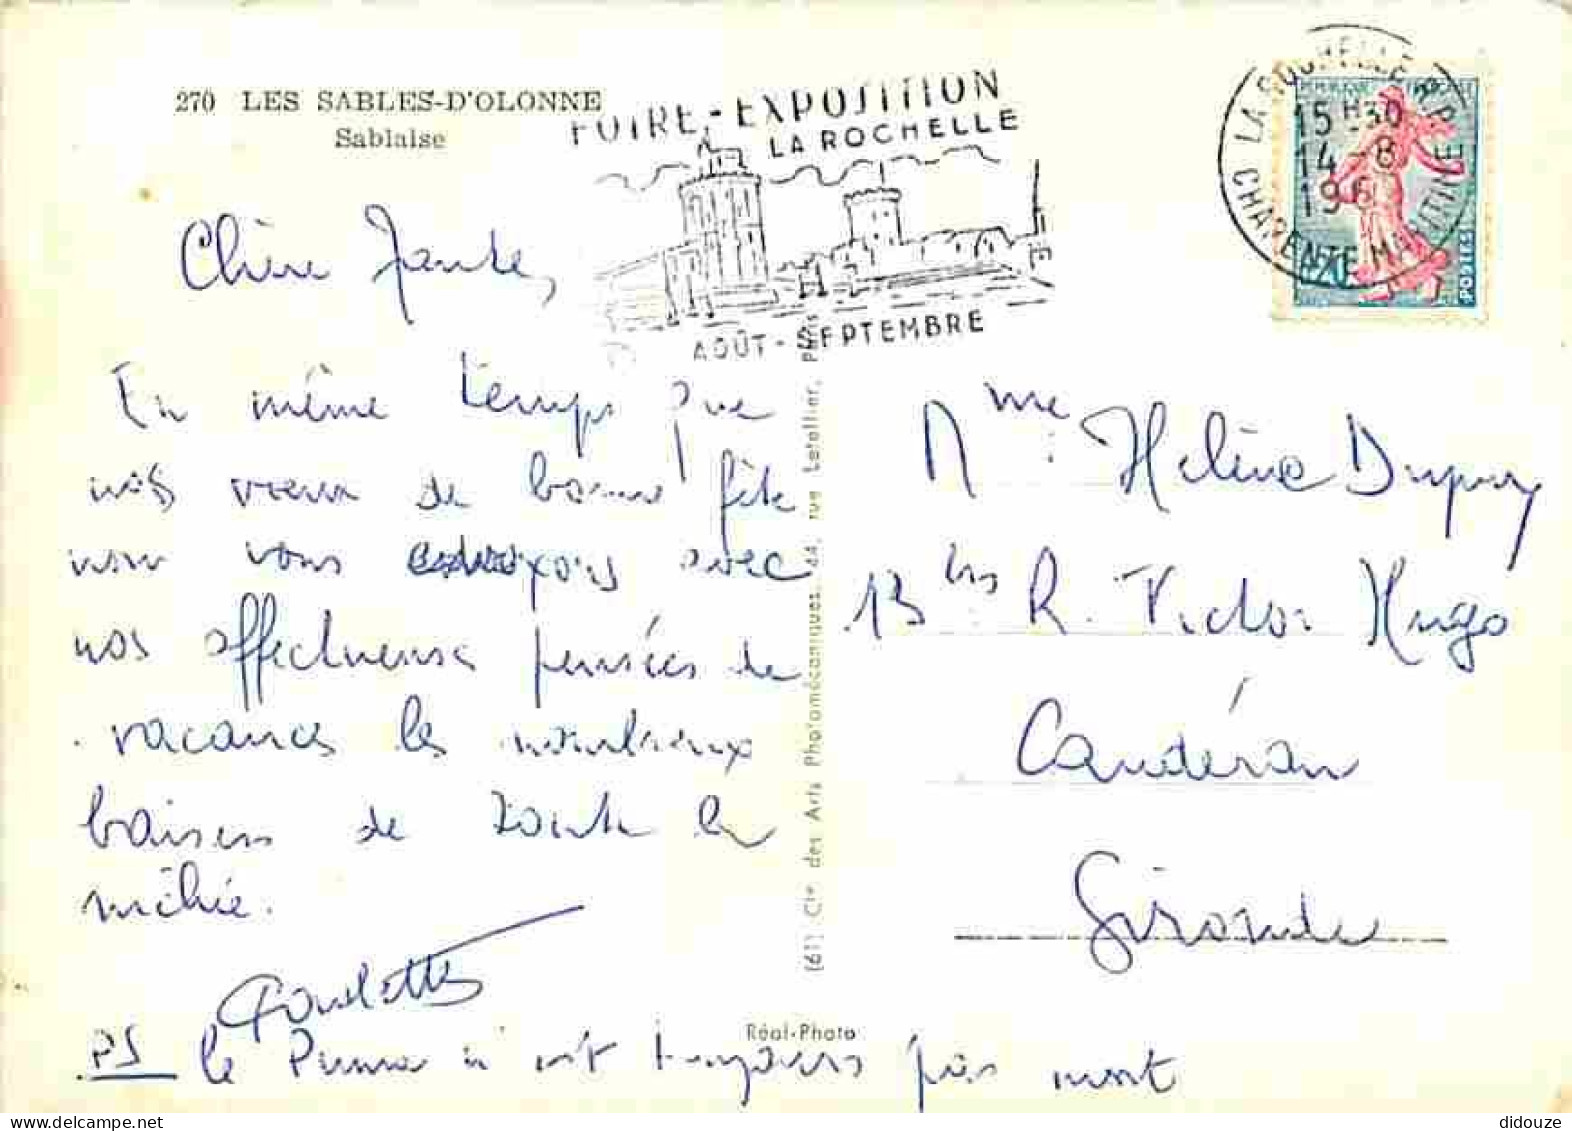 270 LES SABLES-D'OLONNE
Sablaise
FOIRE-EXPOSITION
LA ROCHELLE
AOÛT-SEPTEMBRE
LA ROCHELLE R.P.
15H30
14-8
196
CHARENTE MARITIME
POSTES
Chère Tante,
En même temps que
nos vœux de bonne fête
nous vous envoyons avec
nos affectueuses pensées de
vacances les nombreux
baisers de toute la
Paulette
PS le Puma n'est toujours pas mort
Mme Hélène Dupuy
13 bis R. Victor Hugo
Caudéran
Gironde
(61) Cie des Arts Photomécaniques, 44, rue Letellier, Paris
Réal-Photo
didouze